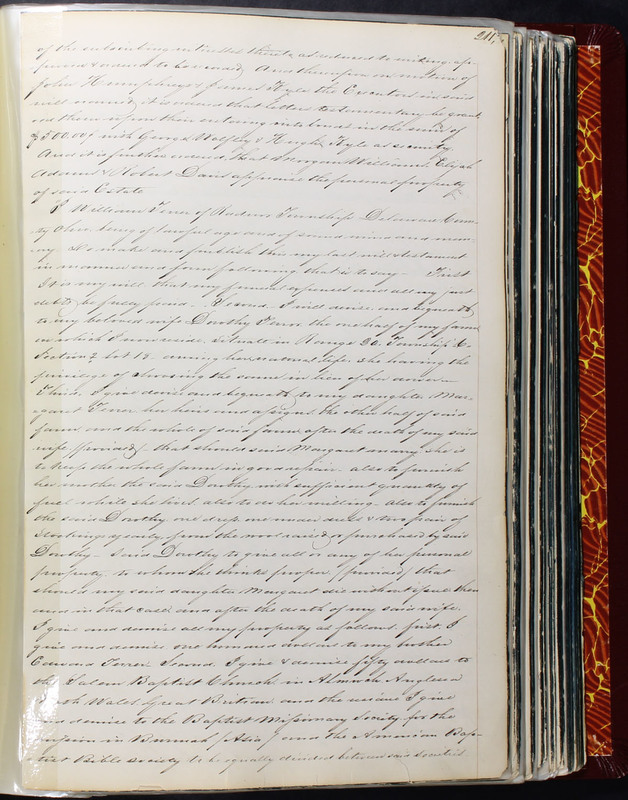 211,
of the subscribing witnesses thereto as reduced to writing ap-
proved & ordered to be record. And thereupon on motion of
John Humphreys & James Kyle the Executors in said
will named, it is ordered that letters testamentary be grant
ed them upon their entering into bond in the sum of
$500.00, with George Wolfley & Hugh Kyle as security
And it is further ordered, that Morgan Williams, Elijah
Adams & Robert Davis appraise the personal property
of said Estate
I William Ferrer of Radnor Township Delaware Coun-
ty Ohio, being of lawful age and of sound mind and mem-
ory do make and publish this my last will & testament
in manner and form following that is to say - First
It is my will that my funeral expenses and all my just
debts be fully paid. Second I will devise and bequeath
to my beloved wife Dorothy the one half of my farm
on which I now reside, situate in Range 20, Township 6.
Section 2 lot 18. during her natural life. she having the
privilege of choosing the same in lieu of her dower -
Third, I give devise and bequeath to my daughter Mar-
garet her heirs and assigns the other half of said
farm and the whole of said farm after the death of my said
wife, (provided) that should said Margaret marry she is
to keep the whole farm in good repair. also to furnish
her mother the said Dorothy with sufficient quantity of
fuel while she lives. also to do her milling. also to furnish
the said Dorothy one dress one under dress & two pair of
stockings yearly from the wool raised or purchased by said
Dorothy. Said Dorothy to give all or any of her personal
property to whom she thinks proper. (provided) that
should my said daughter Margaret die without issue then
and in that case and after the death of my said wife.
I give and devise all my property as follows. first. I
give and devise one hundred dollars to my brother
Edward Second. I give & devise fifty dollars to
the Salem Baptist Church in Almwch Anglesea
North Wales Great Britain. and the residue I give
and devise to the Baptist Missionary Society for the
in Burmah (Asia) and the American Bap-
tist Bible Society to be equally divided between said Societies